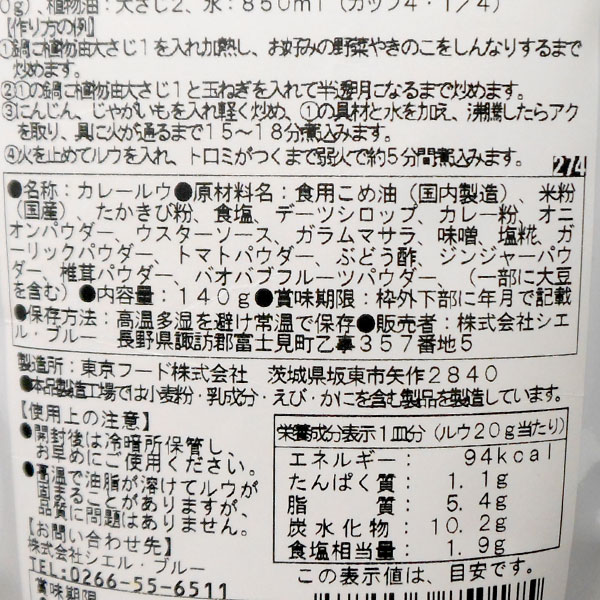 0g)、植物油：大さじ2、水：850ml（カップ4・1/4）
【作り方の例】
①鍋に植物油大さじ1を入れ加熱し、お好みの野菜やきのこをしんなりするまで
炒めます。
②①の鍋に植物油大さじ1と玉ねぎを入れて半透明になるまで炒めます。
③にんじん、じゃがいもを入れ軽く炒め、①の具材と水を加え、沸騰したらアク
を取り、具に火が通るまで15～18分煮込みます。
④火を止めてルウを入れ、トロミがつくまで弱火で約5分間煮込みます。
274
●名称：カレールウ●原材料名：食用こめ油（国内製造）、米粉
（国産）、たかきび粉、食塩、デーツシロップ、カレー粉、オニ
オンパウダー、ウスターソース、ガラムマサラ、味噌、塩糀、ガ
ーリックパウダー、トマトパウダー、ぶどう酢、ジンジャーパウ
ダー、椎茸パウダー、バオバブフルーツパウダー、（一部に大豆
を含む）●内容量：140g●賞味期限：枠外下部に年月で記載
●保存方法：高温多湿を避け常温で保存●販売者：株式会社シエ
ル・ブルー　長野県諏訪郡富士見町乙事357番地5
製造所：東京フード株式会社　茨城県坂東市矢作2840
●本品製造工場では小麦粉・乳成分・えび・かにを含む製品を製造しています。
【使用上の注意】
●開封後は冷暗所保管し、
お早めにご使用ください。
●高温で油脂が溶けてルウが
固まることがありますが、
品質に問題はありません。
【お問い合わせ先】
株式会社シエル・ブルー
TEL:0266-55-6511
賞味期限
栄養成分表示1皿分（ルウ20g当たり）
エネルギー：94kcal
たんぱく質：1.1g
脂質：5.4g
炭水化物：10.2g
食塩相当量：1.9g
この表示値は、目安です。